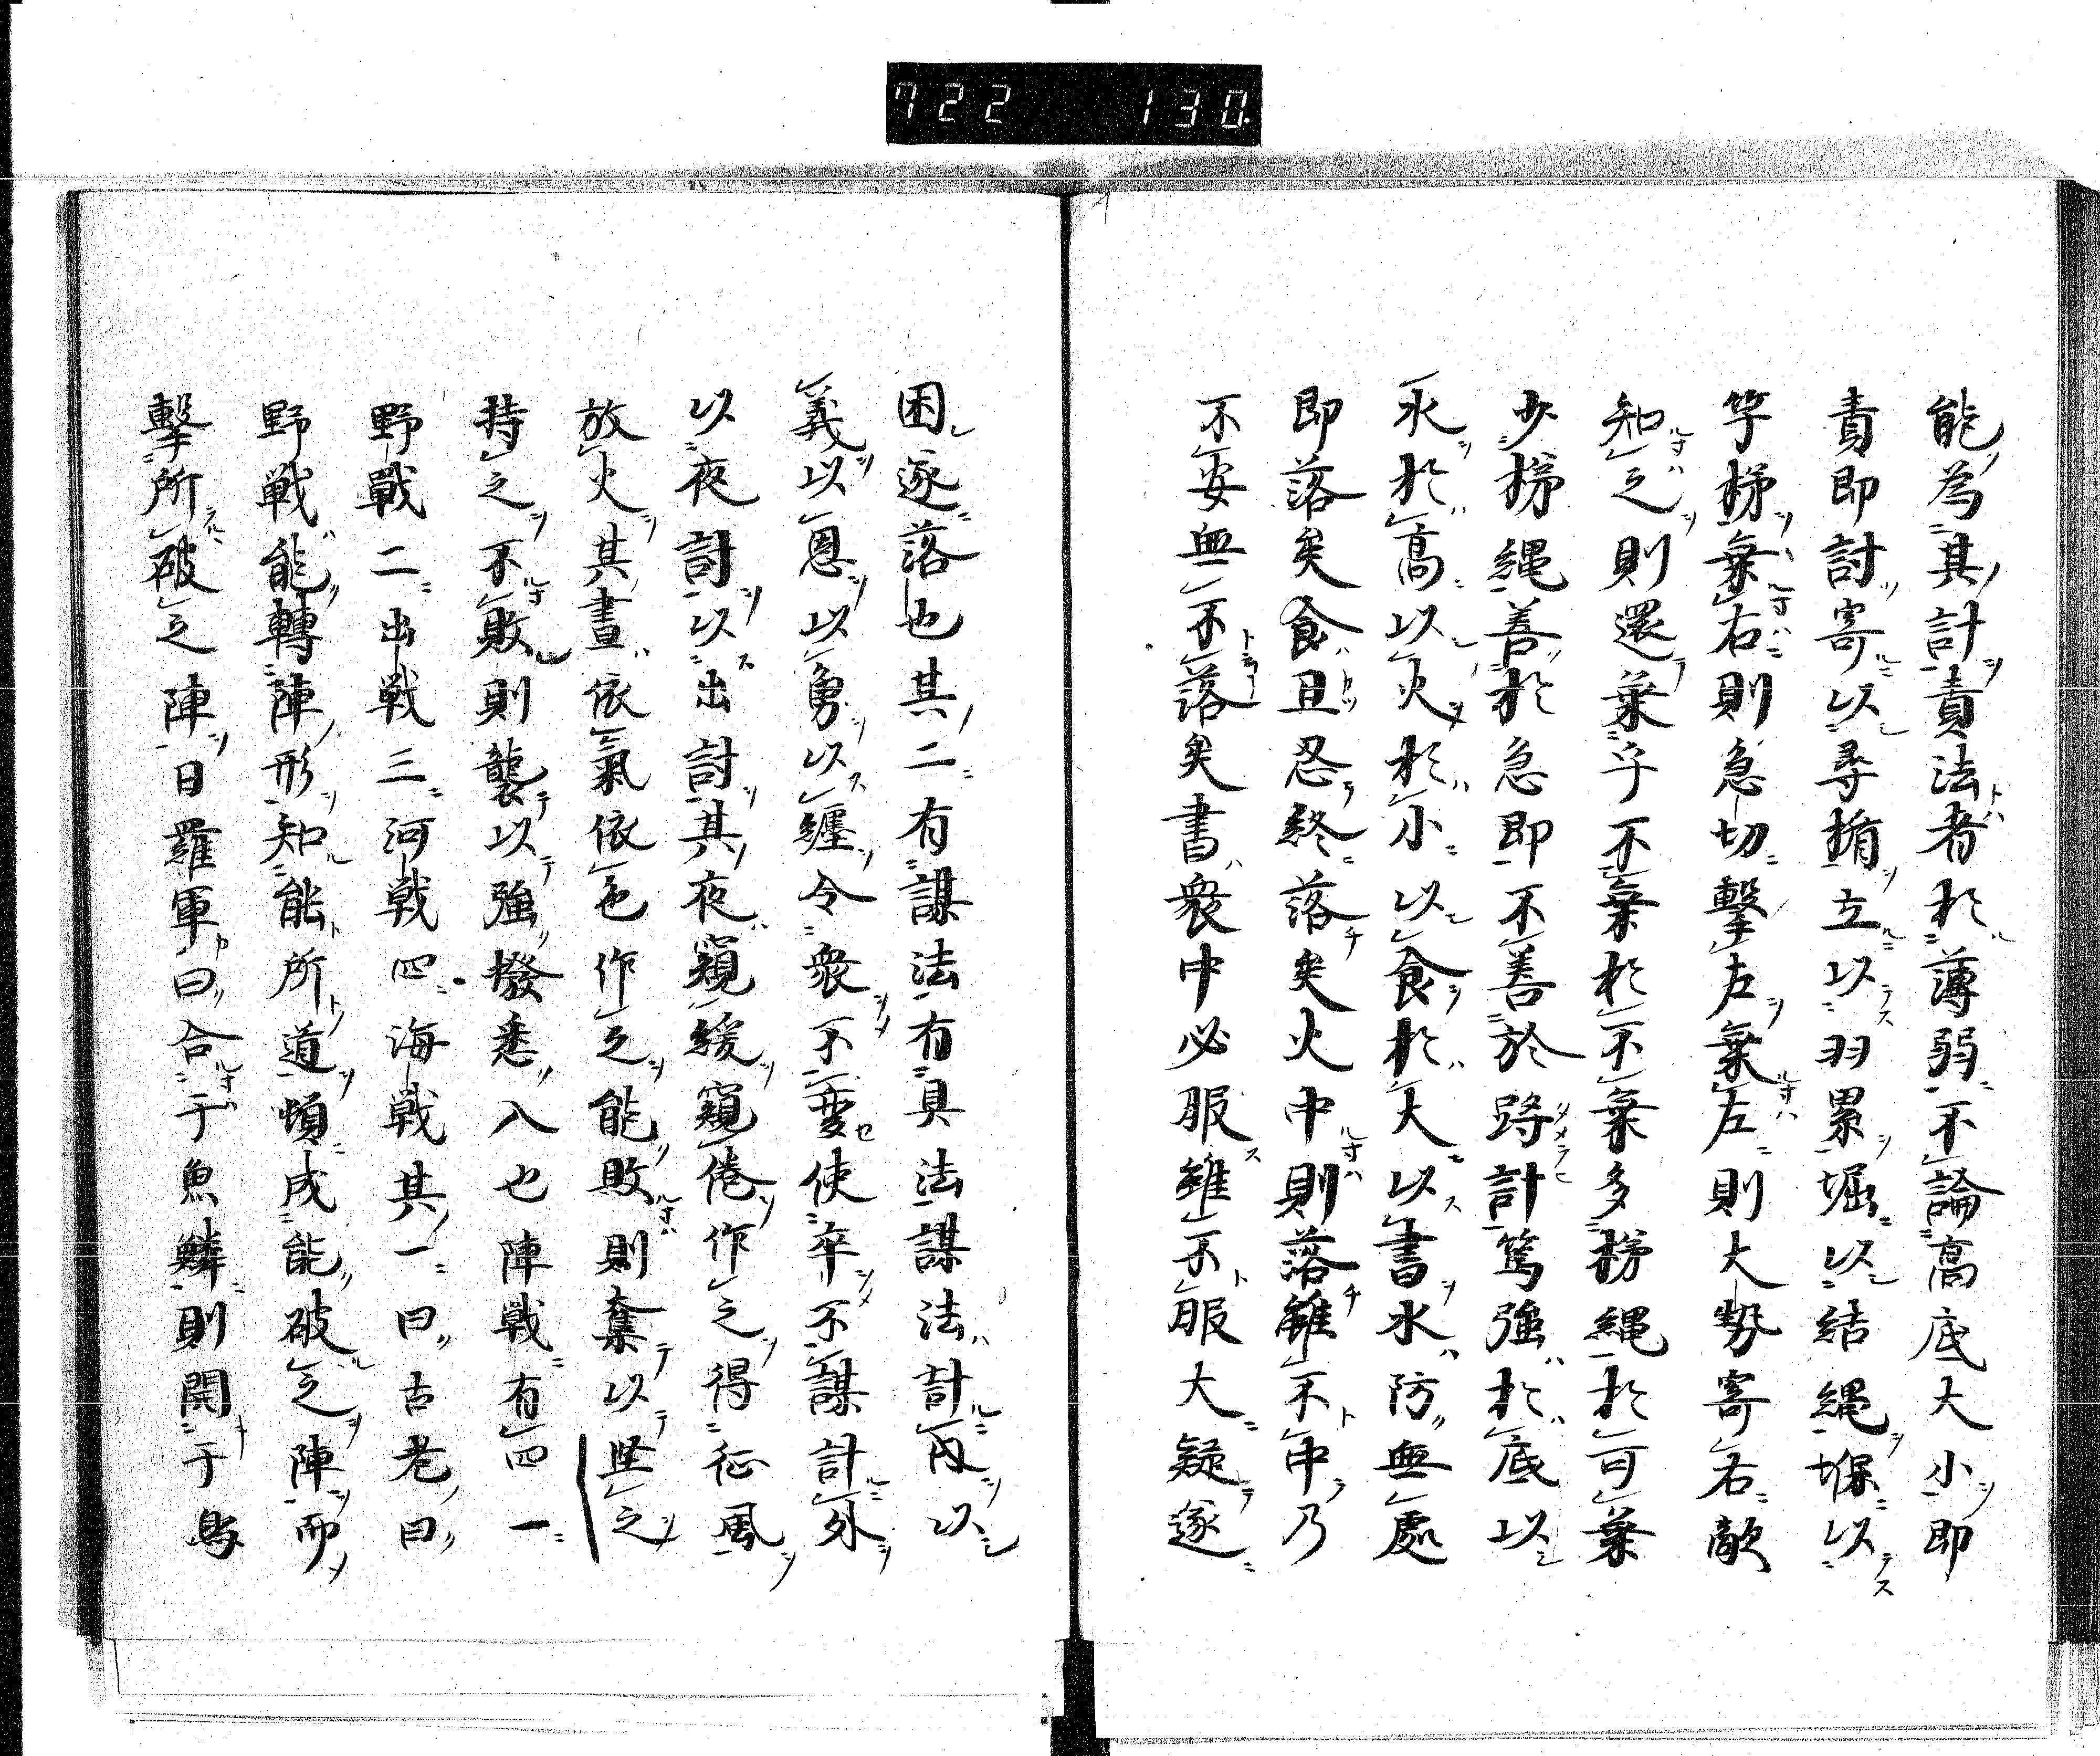 722 130.
能為其計責法者於薄弱不論高底大小即
責即討寄以尋楯立以羽累堀以結縄堢以
竿梯棄右則急切擊左棄左則大勢寄右敵
知之則還棄乎不棄於不棄多梯縄於可棄
少梯縄善於急即不善於路計篤強於底以
水於高以火於小以食於大以書水防無處
即落矣食且忍終落矣火中則落雖不中乃
不安無不落矣書衆中必服雖不服大疑遂
困遂落也其二有謀法有具法謀法計內以
義以恩以勇以纏令衆不變使卒不謀計外
以夜討以出討其夜窺緩窺倦作之得征風
放火其晝依氣依色作之能敗則奪以坚之
持之不敗則襲以強撥悉入也陣戰有四一
野戰二出戦三河戦四海戦其一曰古老曰
野戦能轉陣形知能所道頓成能破之陣而
擊所破之陣日羅軍曰合于魚鱗則開于鳥